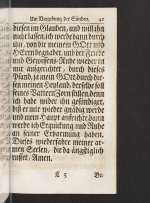 Um Vergebung der Sünden. 41
diesen im Glauben, und will ihn
nicht lassen, ich werde dann durch
ihn, von dir meinem GOtt und
HErrn begnadet, und der Friede
und Gewissens-Ruhe wieder in
mir aufgerichtet, durch dieses
Pfand, ja mein GOtt, durch die-
sen meinen Heyland, besänfte dein
Vatters Zorn stillen, denn
ich habe wider ihn gesündiget,
biß er mir wieder gnädig werde
und mein Haupt aufrichte, dann
werde ich Erquickung und Ruhe
an seiner Erbarmung haben.
Dieses wiederfahre meiner ar-
men Seelen, die da ängstiglich
ruffet, Amen.
C 5 Be-